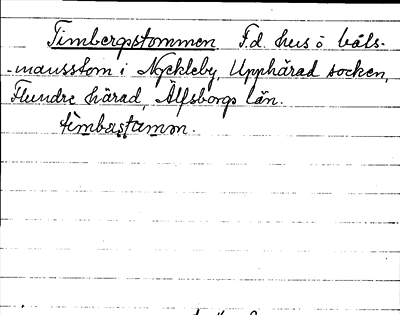 Timbergstommen F.d. hus å båts-
-mansstom i Nyckleby, Upphärad socken,
Flundre härad, Älfsborgs län.
timbastammen.